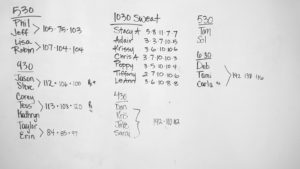 530
Phil
Jeff > 105-75-103
Lisa
Robin > 107-104-104
930
Jason
Steve > 112-106-100
Corey
Tess
Kathryn > 113-103-120
Taylor
Erin > 84-85-97
1030 Sweat
Stacy A 5 8 11 7 7
Adair 3 3 7 10 5
Krissy 3 6 10 10 6
Chris A 3 7 10 10 3
Poppy 3 5 10 10 4
Tiffany 2 7 10 10 6
LeAnn 3 6 10 8 8
430
Dan
Kris
Jake
Sara
192-110-112
530
Tom
630
Deb
Tami
Carla
192 138 136